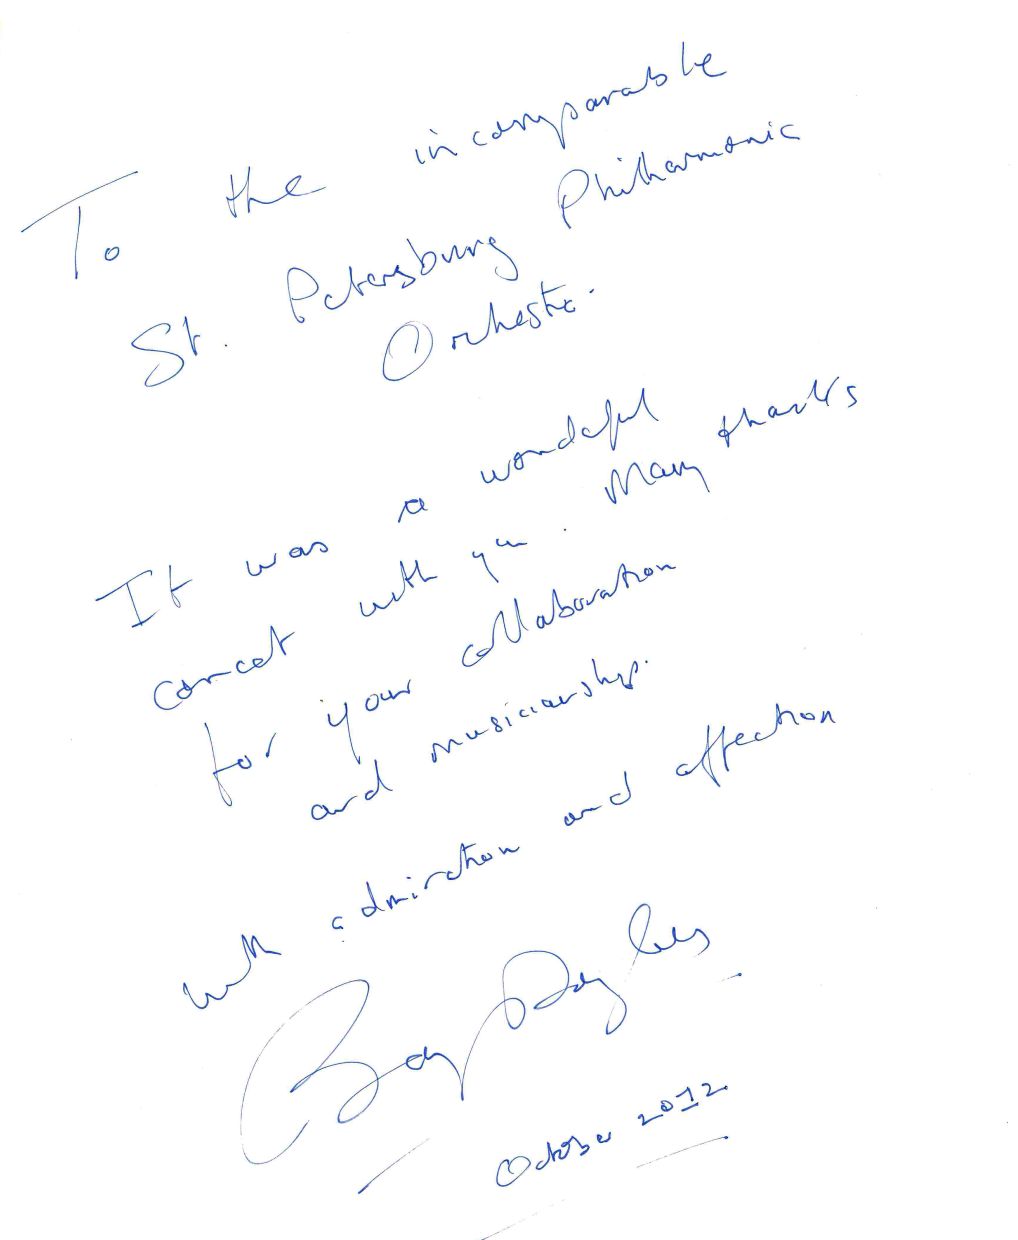 To the incomparable
St. Petersburg Philharmonic
Orchestra.
It was a wonderful
concert with you. Many thanks
for your collaboration
and musicianship.
with admiration and affection
Barry Douglas
October 2012